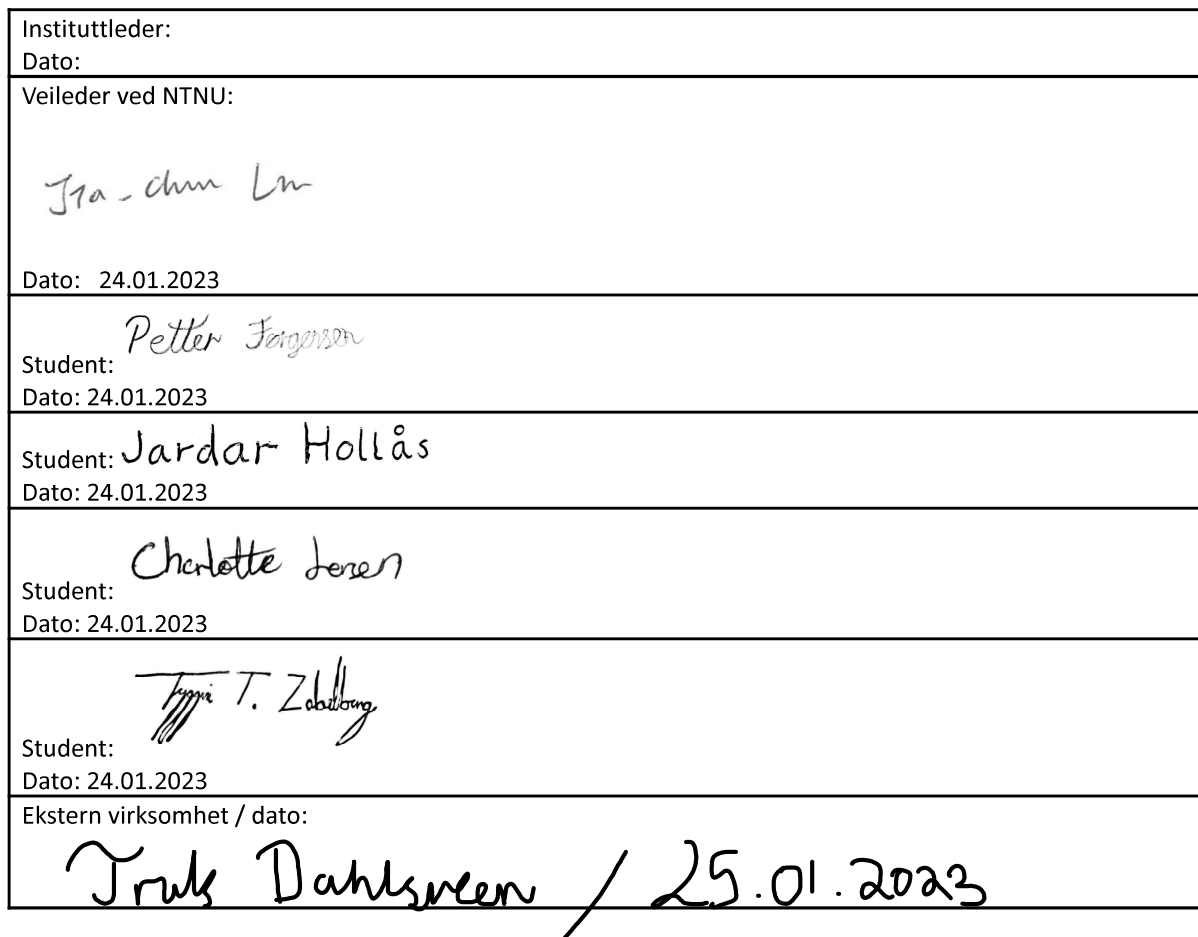 Instituttleder:
Dato:
Veileder ved NTNU:
Jia-Chun Lin
Dato: 24.01.2023
Petter
Student:
Dato: 24.01.2023
Student: Jardar Hollås
Dato: 24.01.2023
Charlotte
Student:
Dato: 24.01.2023
T.
Student:
Dato: 24.01.2023
Ekstern virksomhet / dato:
Truls Dahlsveen / 25.01.2023